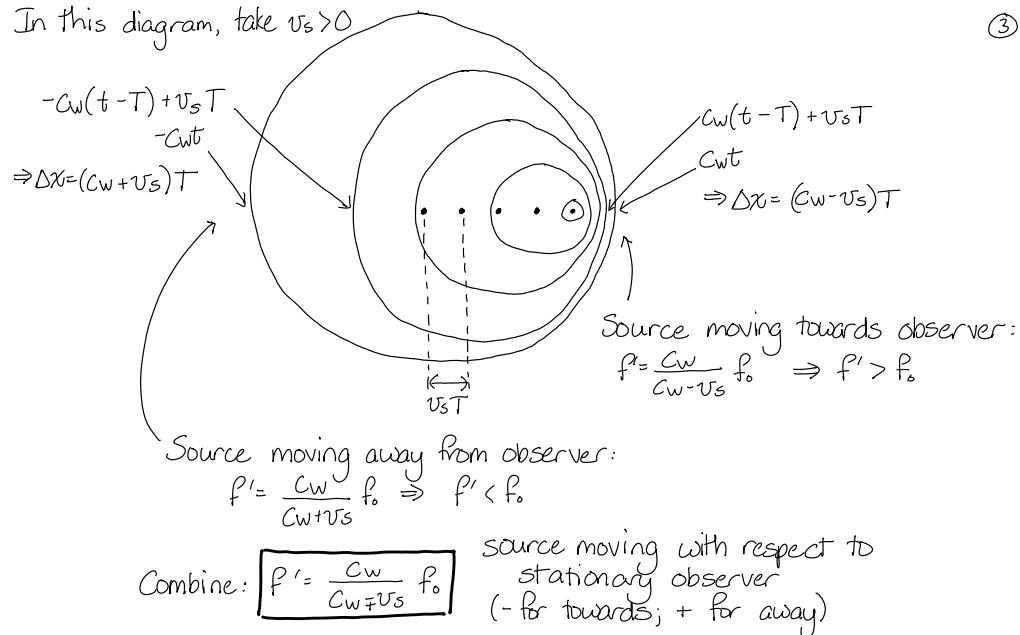 In this diagram, take v_s > 0
③
-c_w(t-T)+v_sT
-c_wt
⇒Δx=(c_w+v_s)T
c_w(t-T)+v_sT
c_wt
⇒Δx=(c_w-v_s)T
v_sT
Source moving towards observer:
f'= c_w/(c_w-v_s) f₀ ⇒ f' > f₀
Source moving away from observer:
f'= c_w/(c_w+v_s) f₀ ⇒ f' < f₀
Combine: f'= c_w/(c_w∓v_s) f₀
source moving with respect to
stationary observer
(- for towards; + for away)